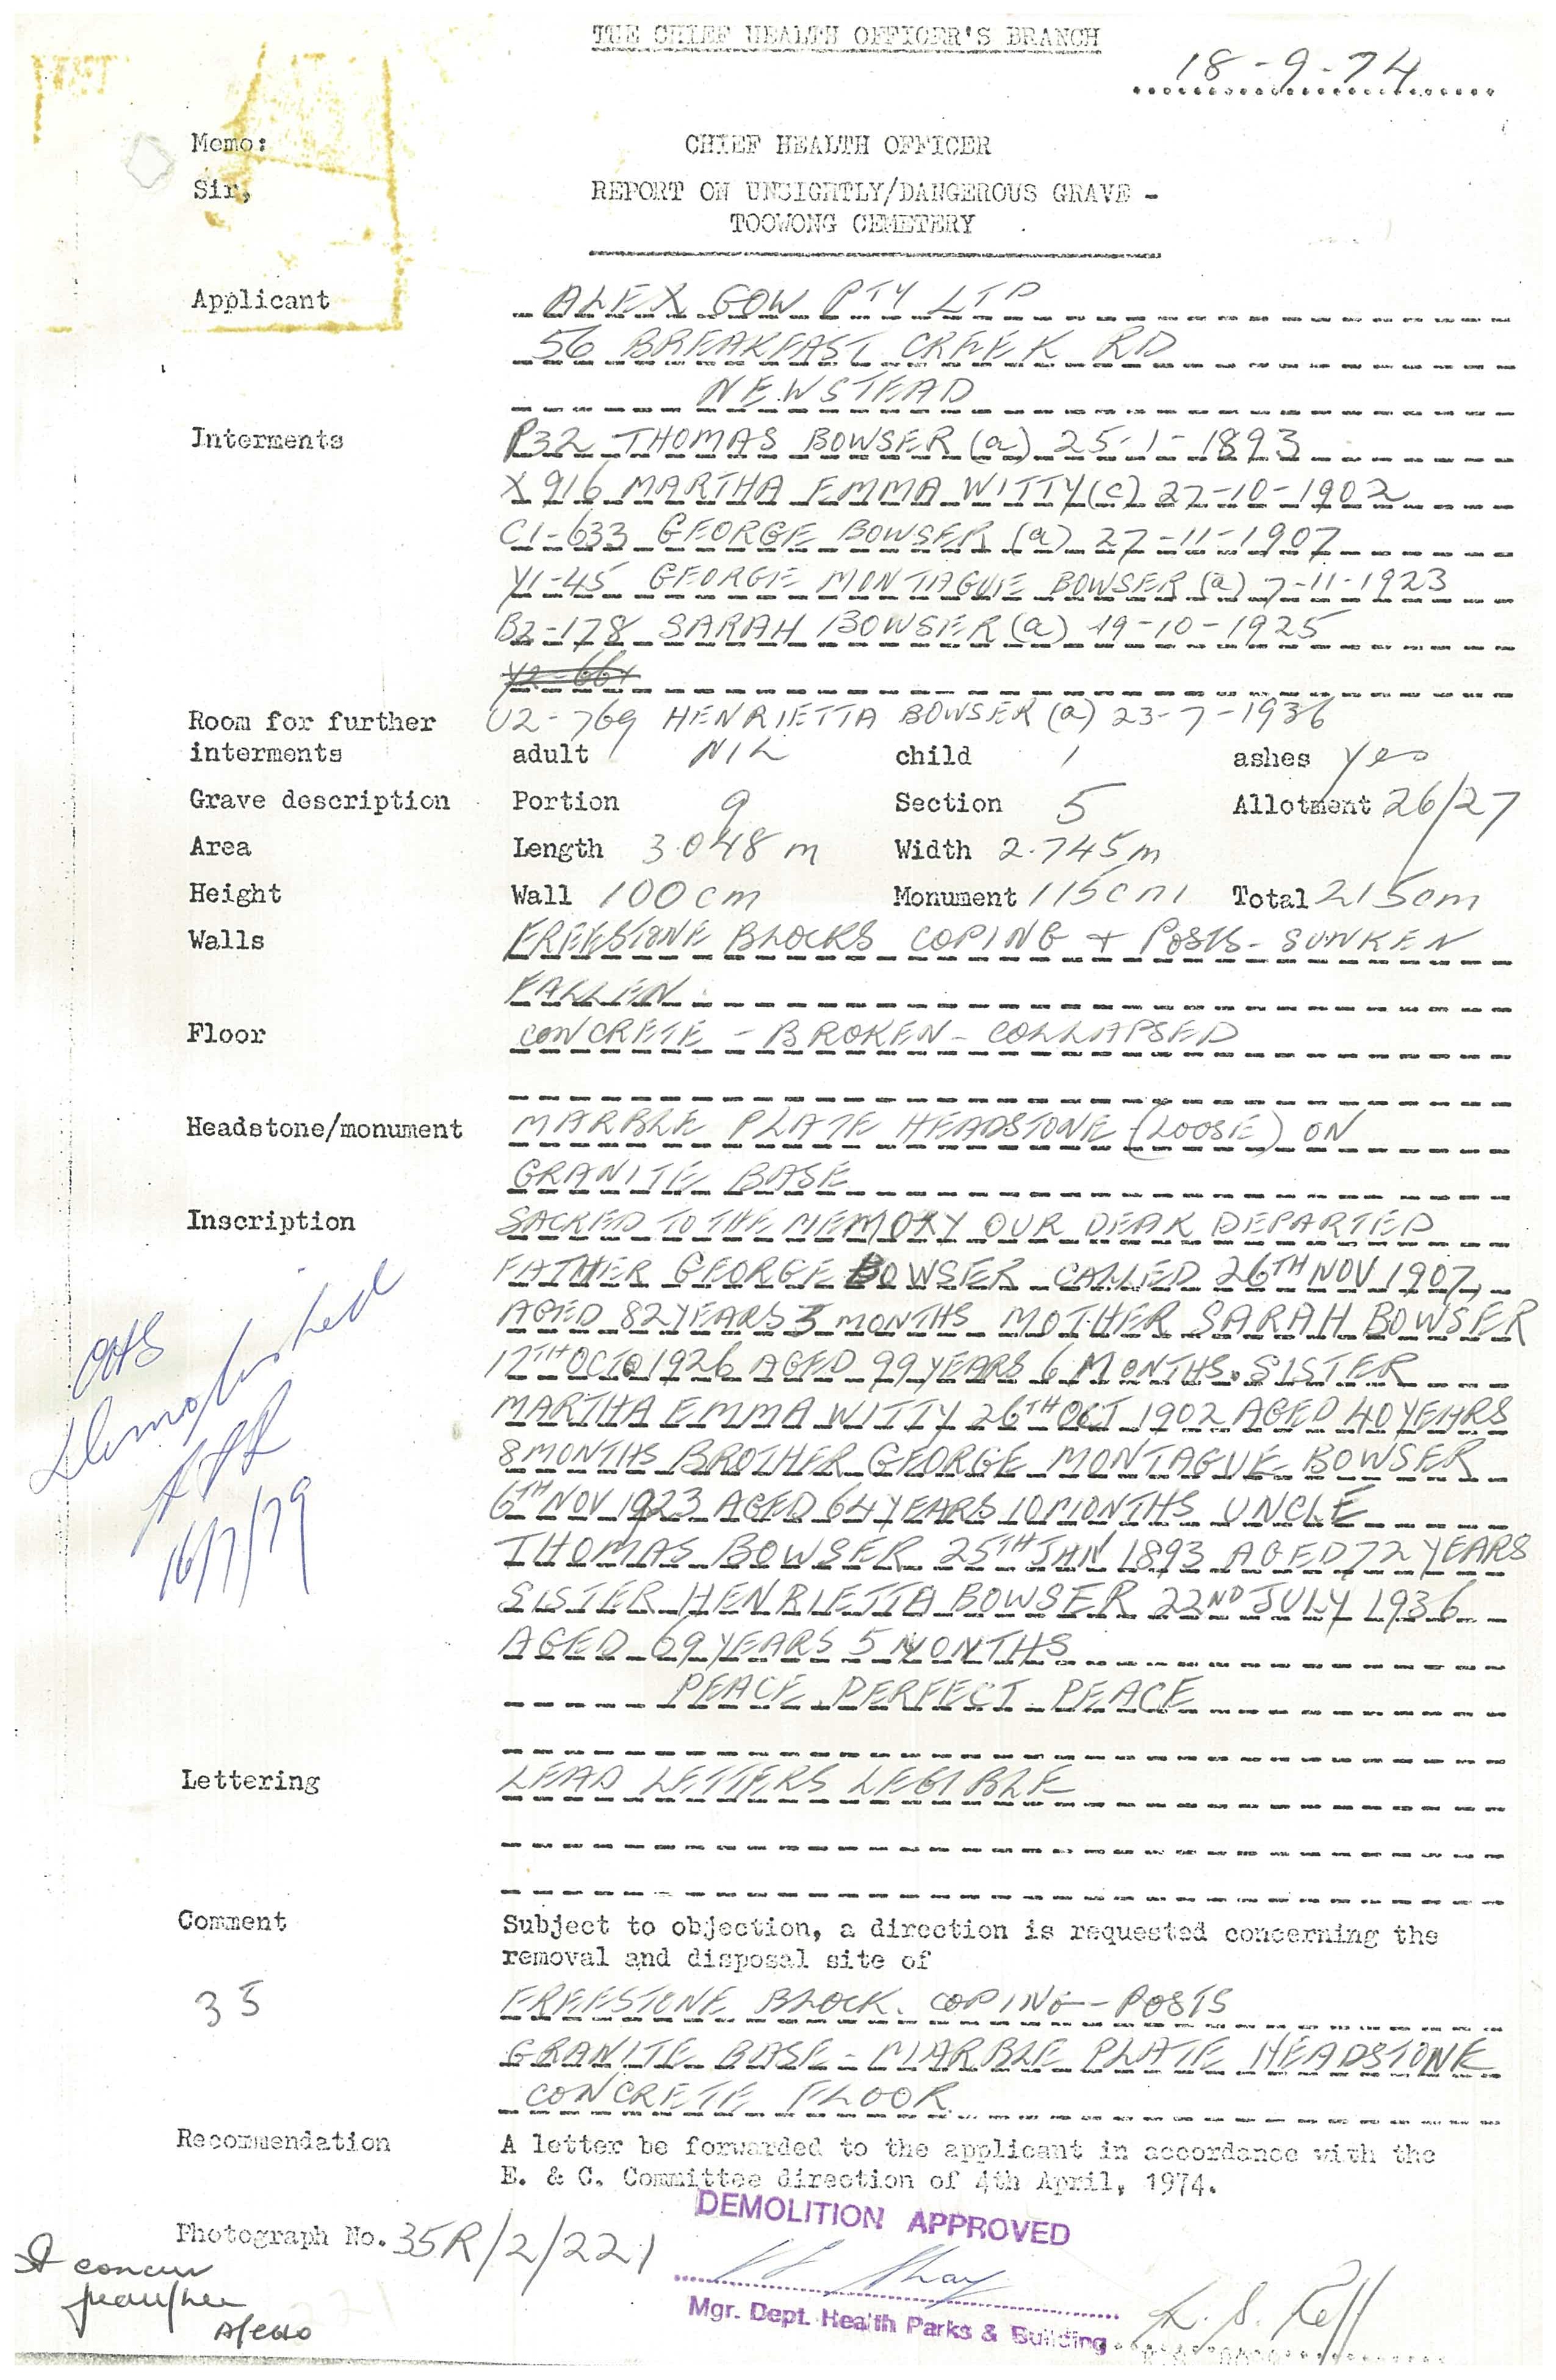 THE CHIEF HEALTH OFFICER'S BRANCH
18-9-74
Memo: CHIEF HEALTH OFFICER
Sir, REPORT ON UNSIGHTLY/DANGEROUS GRAVE -
TOOWONG CEMETERY
Applicant ALEX GOW PTY LTD
56 BREAKFAST CREEK RD
NEWSTEAD
Interments P32 THOMAS BOWSER (a) 25-1-1893
X916 MARTHA EMMA WITTY (c) 27-10-1902
C1-633 GEORGE BOWSER (a) 27-11-1907
Y1-45 GEORGE MONTAGUE BOWSER (a) 7-11-1923
B2-178 SARAH BOWSER (a) 19-10-1925
Room for further U2-769 HENRIETTA BOWSER (a) 23-7-1936
interments adult NIL child 1 ashes yes
Grave description Portion 9 Section 5 Allotment 26/27
Area Length 3.048 m Width 2.745m
Height Wall 100cm Monument 115cm Total 215cm
Walls FREESTONE BLOCKS COPING + POSTS - SUNKEN
FALLEN
Floor CONCRETE - BROKEN - COLLAPSED
Headstone/monument MARBLE PLATE HEADSTONE (LOOSE) ON
GRANITE BASE
Inscription SACRED TO THE MEMORY OUR DEAR DEPARTED
FATHER GEORGE BOWSER CALLED 26TH NOV 1907,
AGED 82 YEARS 3 MONTHS MOTHER SARAH BOWSER
17TH OCTO 1926 AGED 99 YEARS 6 MONTHS. SISTER
MARTHA EMMA WITTY 26TH OCT 1902 AGED 40 YEARS
8 MONTHS BROTHER GEORGE MONTAGUE BOWSER
6TH NOV 1923 AGED 64 YEARS 10 MONTHS UNCLE
THOMAS BOWSER 25TH JAN 1893 AGED 72 YEARS
SISTER HENRIETTA BOWSER 22ND JULY 1936
AGED 69 YEARS 5 MONTHS
PEACE PERFECT PEACE
Demolished
16/7/79
Lettering LEAD LETTERS LEGIBLE
Comment Subject to objection, a direction is requested concerning the
removal and disposal site of
35 FREESTONE BLOCK. COPING - POSTS
GRANITE BASE - MARBLE PLATE HEADSTONE
CONCRETE FLOOR
Recommendation A letter be forwarded to the applicant in accordance with the
E. & C. Committee direction of 4th April, 1974.
DEMOLITION APPROVED
Photograph No. 35R/2/221
I concur
Mgr. Dept. Health Parks & Building